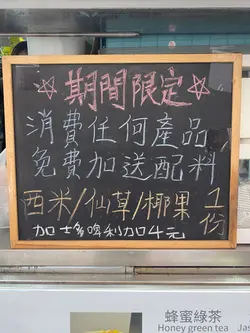 ☆期間限定☆
消費任何產品
免費加送配料
西米/仙草/椰果 1份
加士多啤利加4元
蜂蜜綠茶
Honey green tea
Jas